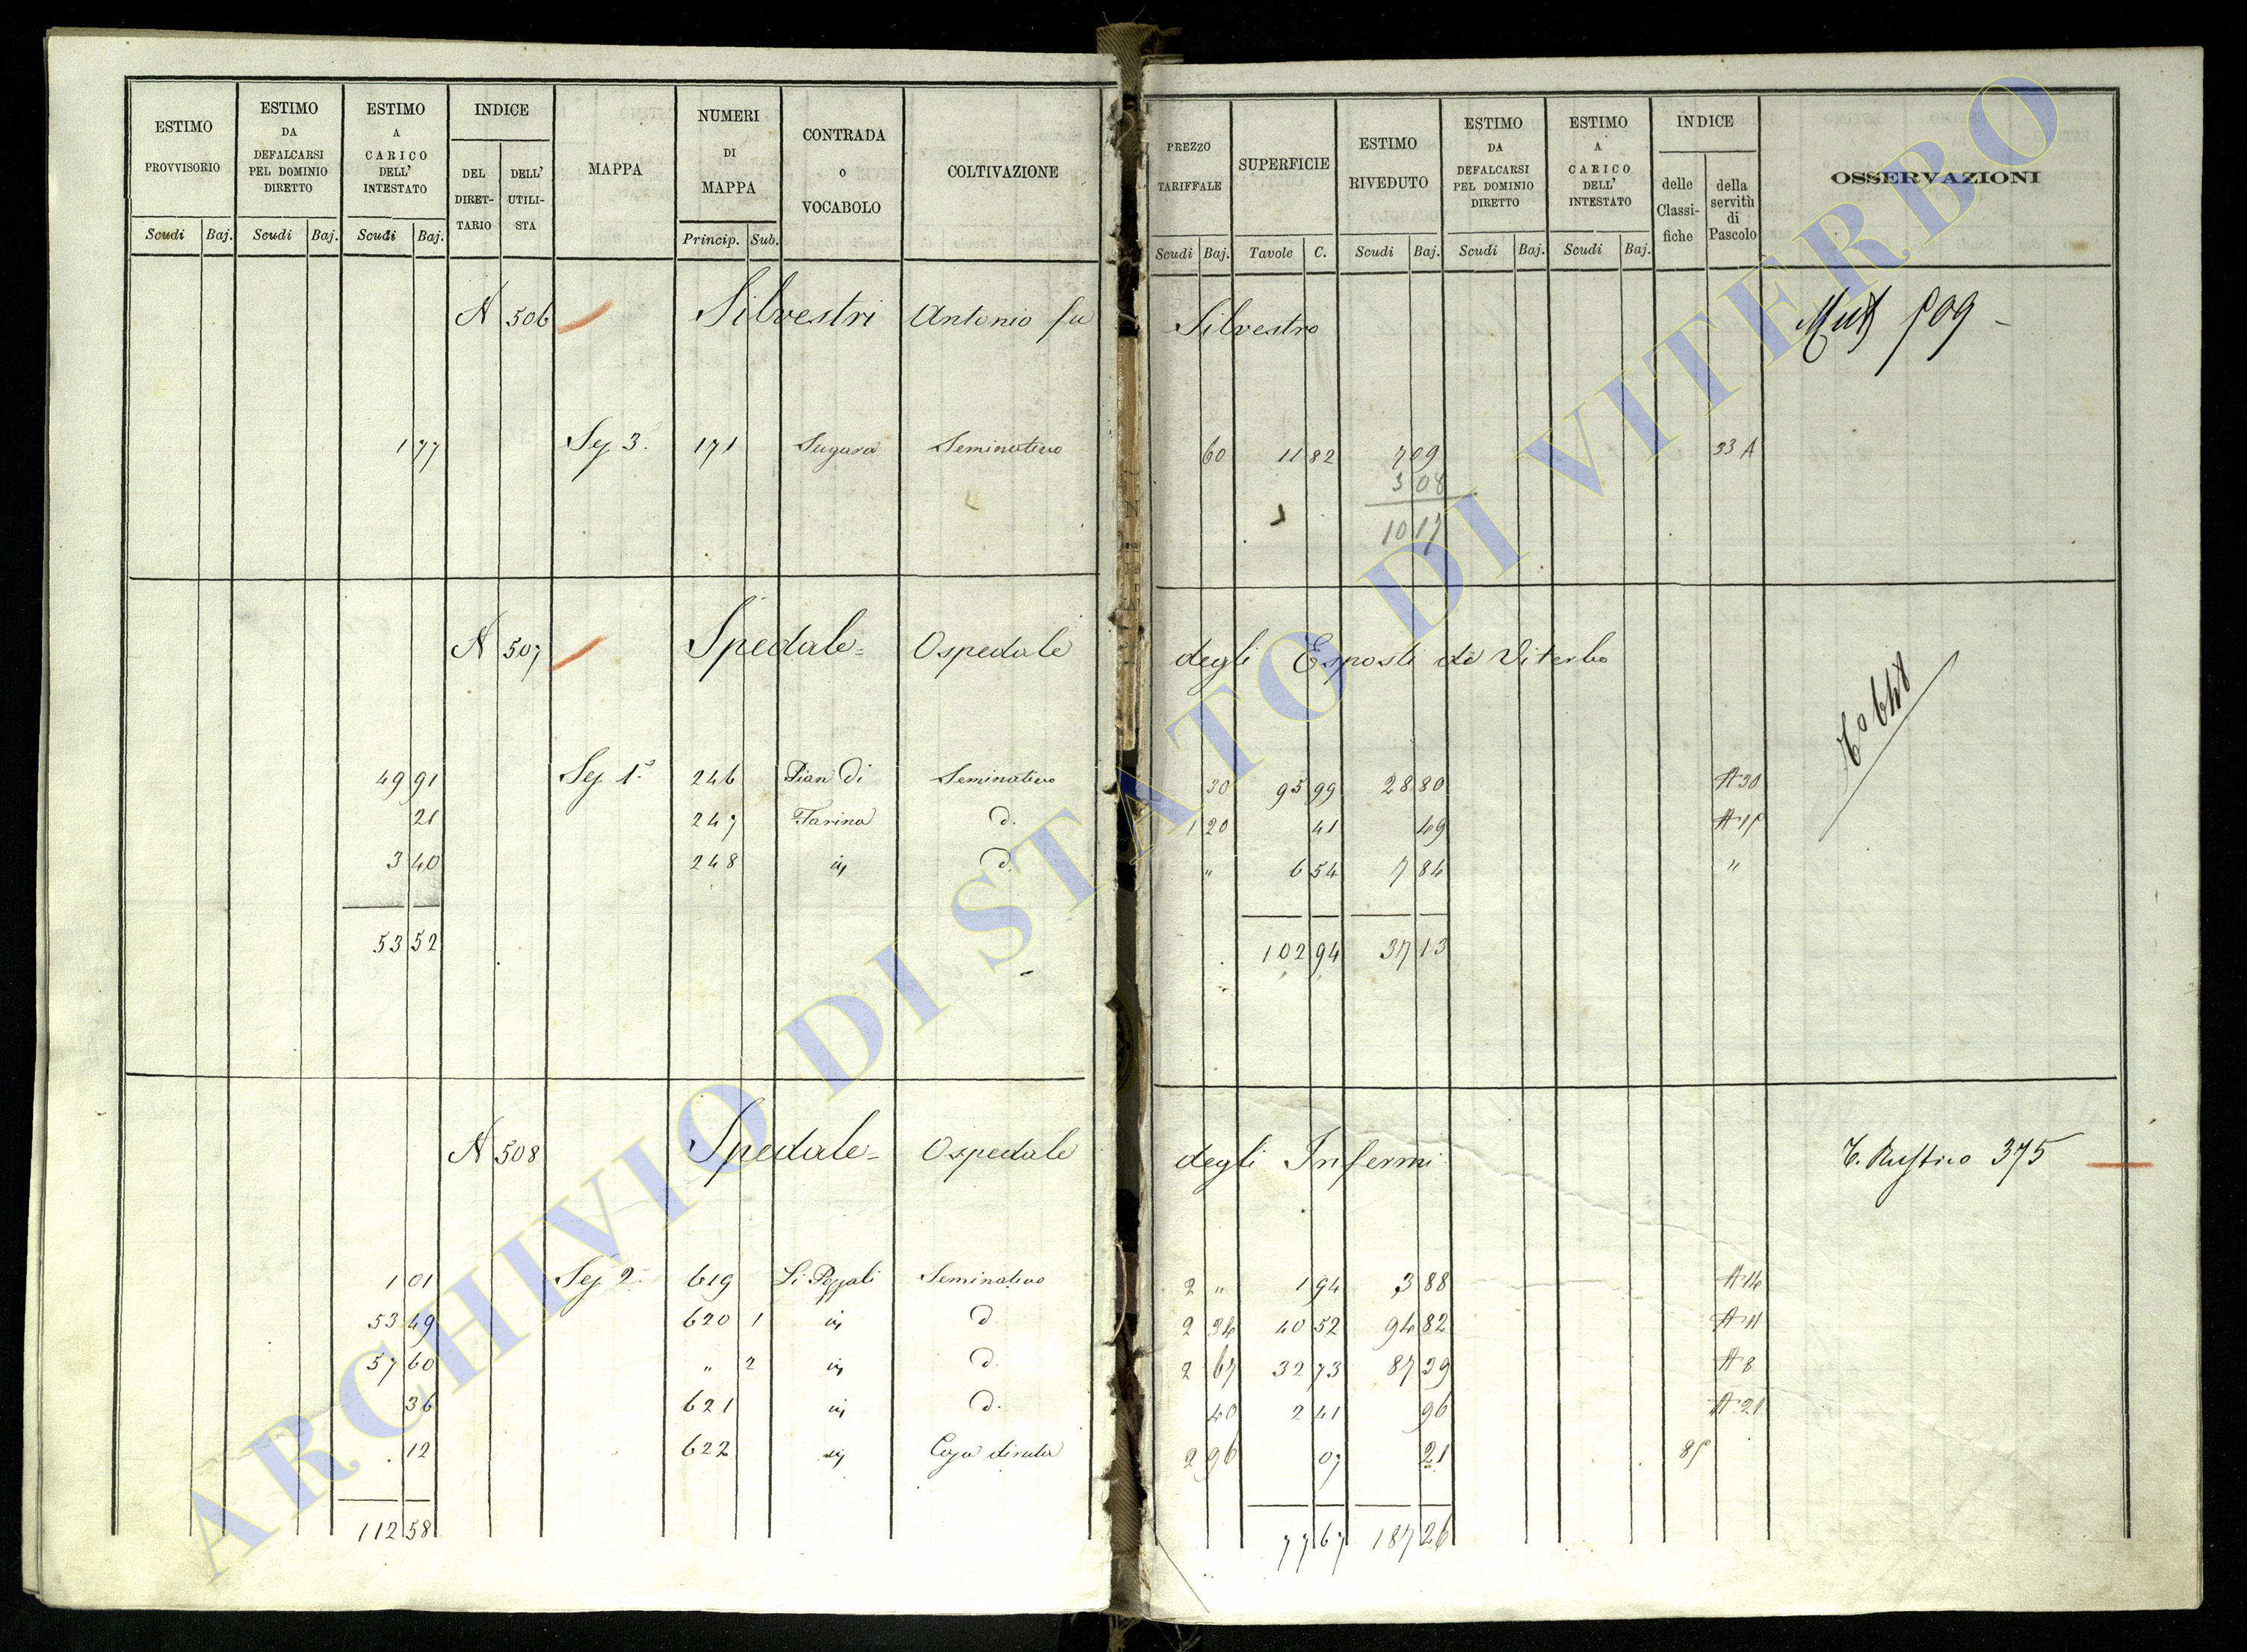 ESTIMO PROVVISORIO
Scudi Baj.
ESTIMO DA DEFALCARSI PEL DOMINIO DIRETTO
Scudi Baj.
ESTIMO A CARICO DELL' INTESTATO
Scudi Baj.
INDICE
DEL DIRET-TARIO
DELL' UTILI-STA
MAPPA
NUMERI DI MAPPA
Princip. Sub.
CONTRADA o VOCABOLO
COLTIVAZIONE
PREZZO TARIFFALE
Scudi Baj.
SUPERFICIE
Tavole C.
ESTIMO RIVEDUTO
Scudi Baj.
ESTIMO DA DEFALCARSI PEL DOMINIO DIRETTO
Scudi Baj.
ESTIMO A CARICO DELL' INTESTATO
Scudi Baj.
INDICE
delle Classi-fiche
della servitù di Pascolo
OSSERVAZIONI
N 506 Silvestri Antonio fu Silvestro 509 –
1 77 Sez 3. 171 Sugara Seminativo 60 11 82 7 09 33 A
3 08
10 17
N 507 Spedale = Ospedale degli Esposti di Viterbo
49 91 Sez 1.a 246 Pian di Seminativo 30 95 99 28 80 A 30
21 247 Farina d. 1 20 41 49 A 15
3 40 248 in d. " 6 54 7 84 "
53 52 102 94 37 13
N 508 Spedale = Ospedale degli Infermi T. Rustico 375
1 01 Sez 2. 619 Seminativo 2 " 1 94 3 88 A 14
53 49 620 1 in d. 2 34 40 52 94 82 A 11
57 60 " 2 in d. 2 67 32 73 87 39 A 8
36 621 in d. 40 2 41 96 A 21
12 622 in Casa diruta 2 96 07 21 85
112 58 77 67 187 26
ARCHIVIO DI STATO DI VITERBO